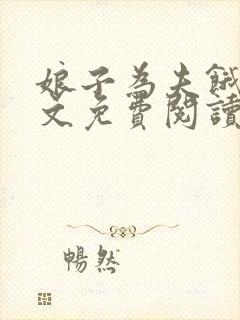 娘子為夫餓
文免費閱讀
暢然